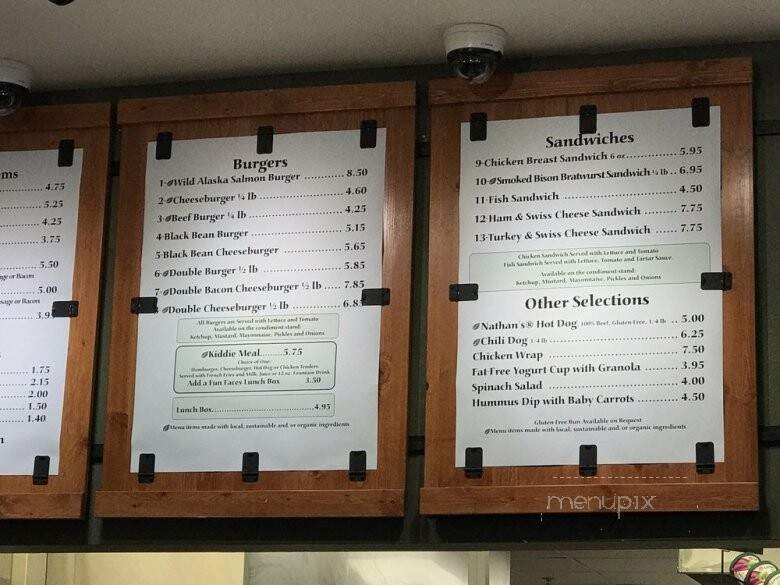 ems
4.75
5.25
4.25
3.75
5.50
sage or Bacon
5.00
sage or Bacon
3.9
1.75
2.15
2.00
1.50
1.40
n
Burgers
1-Wild Alaska Salmon Burger .......... 8.50
2-Cheeseburger ¼ lb .......... 4.60
3-Beef Burger ¼ lb .......... 4.25
4-Black Bean Burger .......... 5.15
5-Black Bean Cheeseburger .......... 5.65
6-Double Burger ½ lb .......... 5.85
7-Double Bacon Cheeseburger ½ lb ..... 7.85
Double Cheeseburger ½ lb .......... 6.85
All Burgers are Served with Lettuce and Tomato
Available on the condiment stand:
Ketchup, Mustard, Mayonnaise, Pickles and Onions
Kiddie Meal.......5.75
Choice of One:
Hamburger, Cheeseburger, Hot Dog or Chicken Tenders
Served with French Fries and Milk, Juice or 12 oz. Fountain Drink
Add a Fun Faces Lunch Box 3.50
Lunch Box..............................4.95
Menu items made with local, sustainable and or organic ingredients
Sandwiches
9-Chicken Breast Sandwich 6 oz............... 5.95
10-Smoked Bison Bratwurst Sandwich ¼ lb .. 6.95
11-Fish Sandwich .......... 4.50
12-Ham & Swiss Cheese Sandwich ........ 7.75
13-Turkey & Swiss Cheese Sandwich ...... 7.75
Chicken Sandwich Served with Lettuce and Tomato
Fish Sandwich Served with Lettuce, Tomato and Tartar Sauce.
Available on the condiment stand:
Ketchup, Mustard, Mayonnaise, Pickles and Onions
Other Selections
Nathan's® Hot Dog 100% Beef, Gluten Free, 1/4 lb .. 5.00
Chili Dog 1/4 lb .......... 6.25
Chicken Wrap .......... 7.50
Fat-Free Yogurt Cup with Granola ........ 3.95
Spinach Salad .......... 4.00
Hummus Dip with Baby Carrots ......... 4.50
Gluten Free Bun Available on Request
Menu items made with local, sustainable and or organic ingredients
menupix